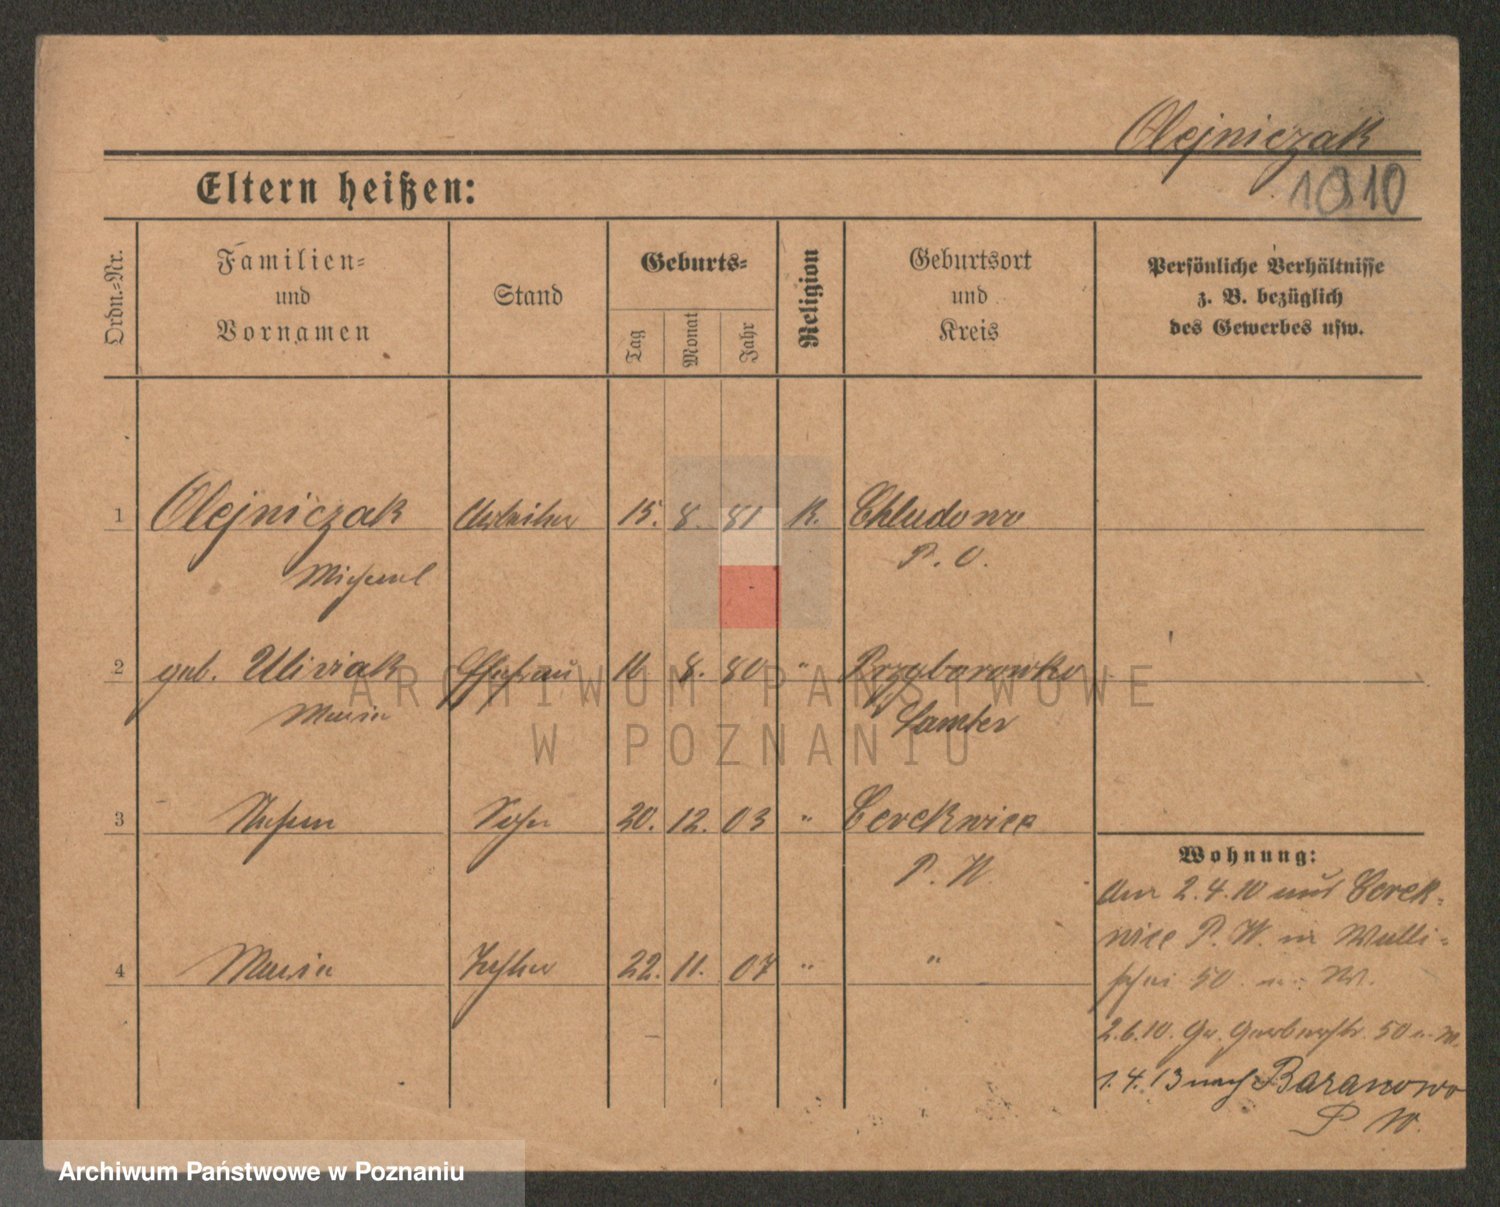 Olejniczak
1910
Eltern heißen:
Ordn.-Nr.
Familien-
und
Vornamen
Stand
Geburts-
Tag
Monat
Jahr
Religion
Geburtsort
und
Kreis
Persönliche Verhältnisse
z. B. bezüglich
des Gewerbes usw.
1 Olejniczak Arbeiter 15. 8. 81 K. Chludowo
Michael P. O.
2 geb. Ehefrau 16 8. 80 " Przyborowko
Maria Samter
3 Stefan Sohn 20. 12. 03 " Cerekwice
P. W.
4 Maria Tochter 22. 11. 07 " "
Wohnung:
Am 2.4.10 aus Cerek-
wice P. W. in Walli-
schei 50
2.6.10. Gr. Gerberstr. 50
1.4.13 nach Baranowo
P. W.
ARCHIWUM PAŃSTWOWE
W POZNANIU
Archiwum Państwowe w Poznaniu